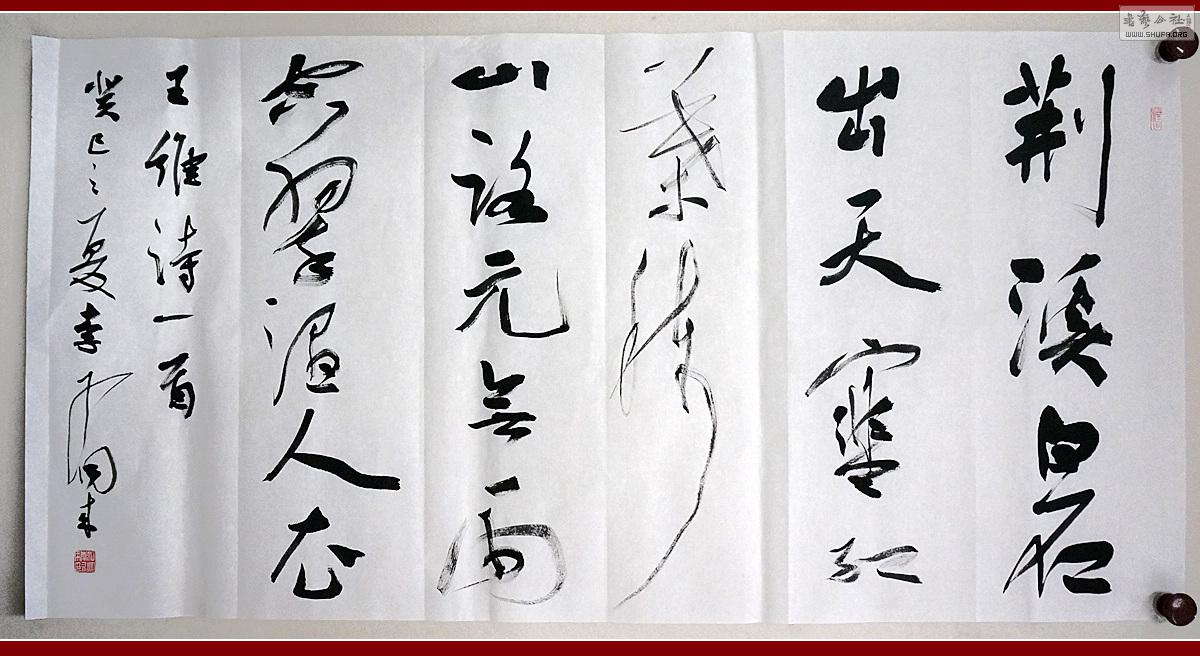 荆溪白石
出天寒红
葉稀
山路元無雨
空翠湿人衣
王维诗一首
癸巳之夏李
書藝公社
WWW.SHUFA.ORG